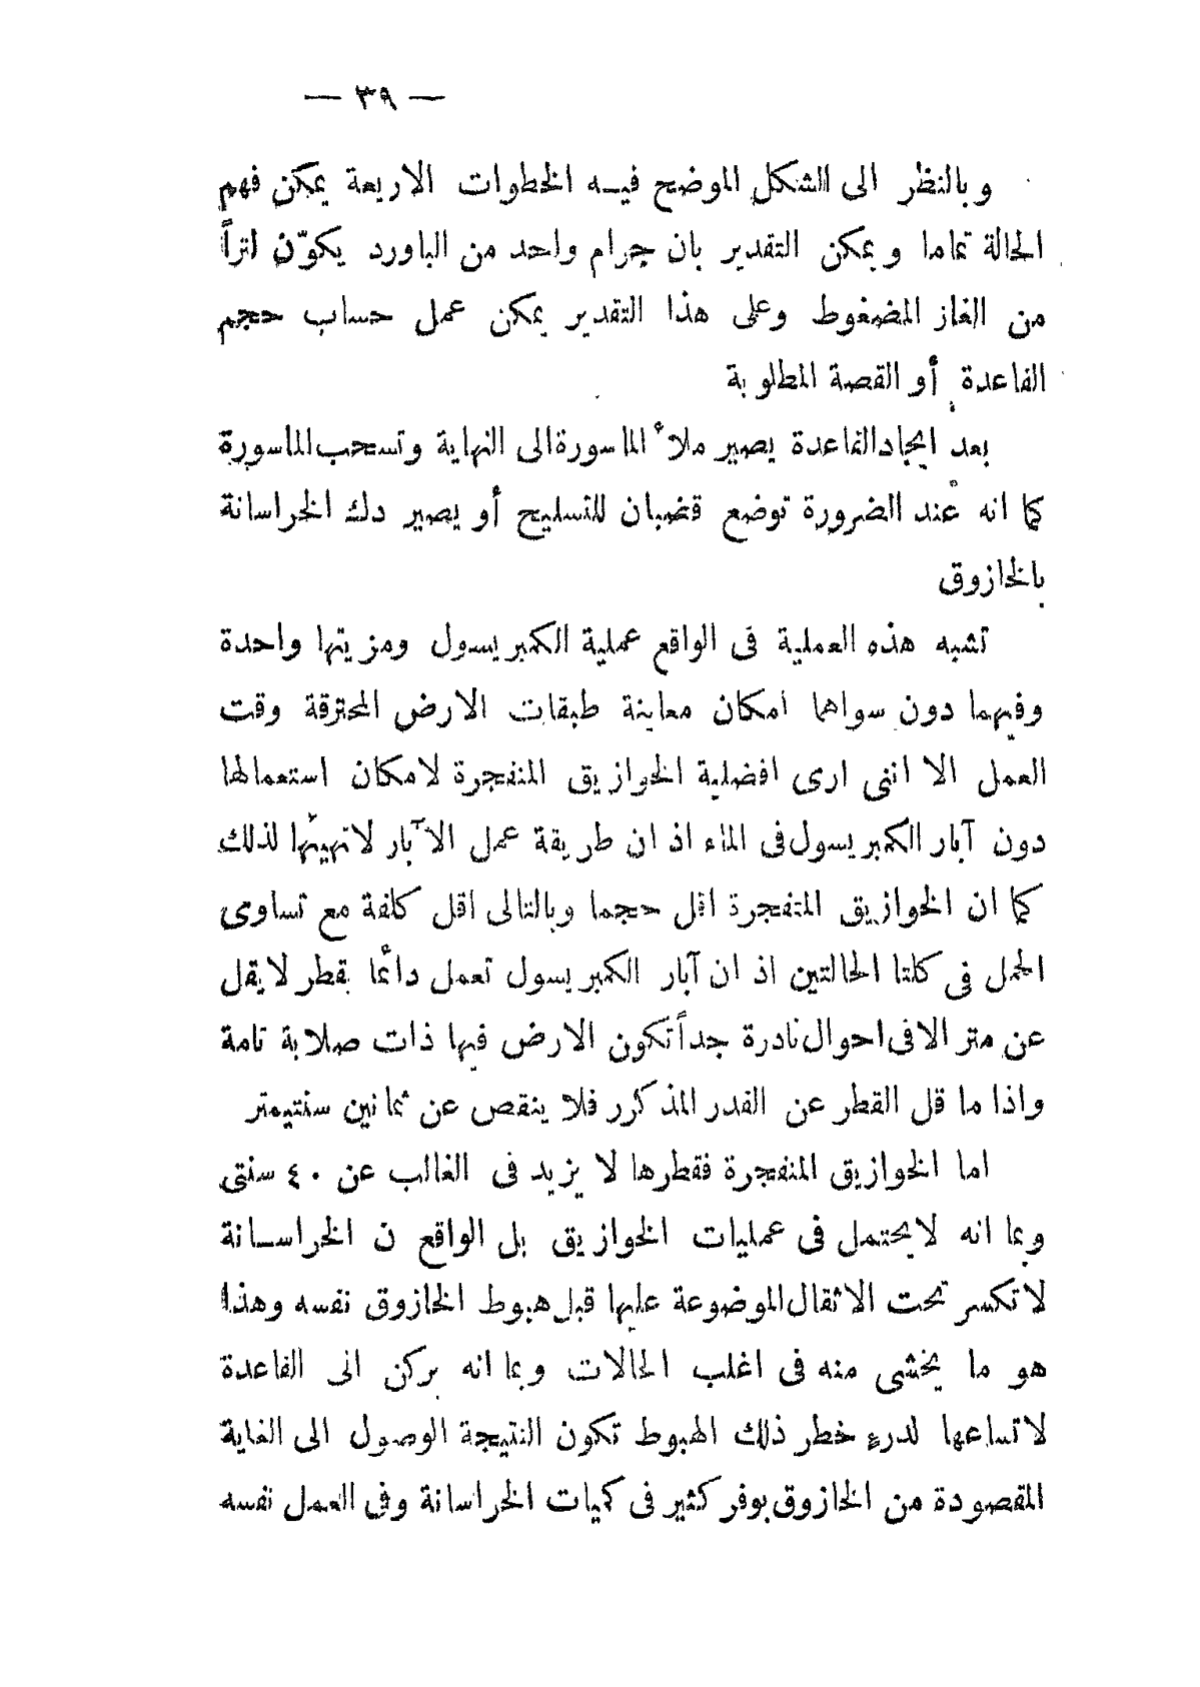 — ٣٩ —
وبالنظر الى الشكل الموضح فيـه الخطوات الاربعة يمكن فهم
الحالة تماما ويمكن التقدير بان جرام واحد من الباورد يكوّن لتراً
من الغاز المضغوط وعلى هذا التقدير يمكن عمل حساب حجم
القاعدة أو القصة المطلوبة
بعد ايجاد القاعدة يصير ملأ الماسورة الى النهاية وتسحب الماسورة
كما انه عند الضرورة توضع قضبان للتسليح أو يصير دك الخراسانة
بالخازوق
تشبه هذه العملية فى الواقع عملية الكمبريسول ومزيتها واحدة
وفيهما دون سواهما امكان معاينة طبقات الارض المحترقة وقت
العمل الا اننى ارى افضلية الخوازيق المنفجرة لامكان استعمالها
دون آبار الكمبريسول فى الماء اذ ان طريقة عمل الآبار لاتهيئها لذلك
كما ان الخوازيق المنفجرة اقل حجما وبالتالى اقل كلفة مع تساوى
الحمل فى كلتا الحالتين اذ ان آبار الكمبريسول تعمل دائما بقطر لايقل
عن متر الا فى احوال نادرة جداً تكون الارض فيها ذات صلابة تامة
واذا ما قل القطر عن القدر المذكور فلا ينقص عن ثمانين سنتيمتر
اما الخوازيق المنفجرة فقطرها لا يزيد فى الغالب عن ٤٠ سنتى
وبما انه لا يحتمل فى عمليات الخوازيق بل الواقع ن الخراسـانة
لا تكسر تحت الاثقال الموضوعة عليها قبل هبوط الخازوق نفسه وهذا
هو ما يخشى منه فى اغلب الحالات وبما انه يركن الى القاعدة
لاتساعها لدرء خطر ذلك الهبوط تكون النتيجة الوصول الى الغاية
المقصودة من الخازوق بوفر كثير فى كميات الخراسانة وفى العمل نفسه